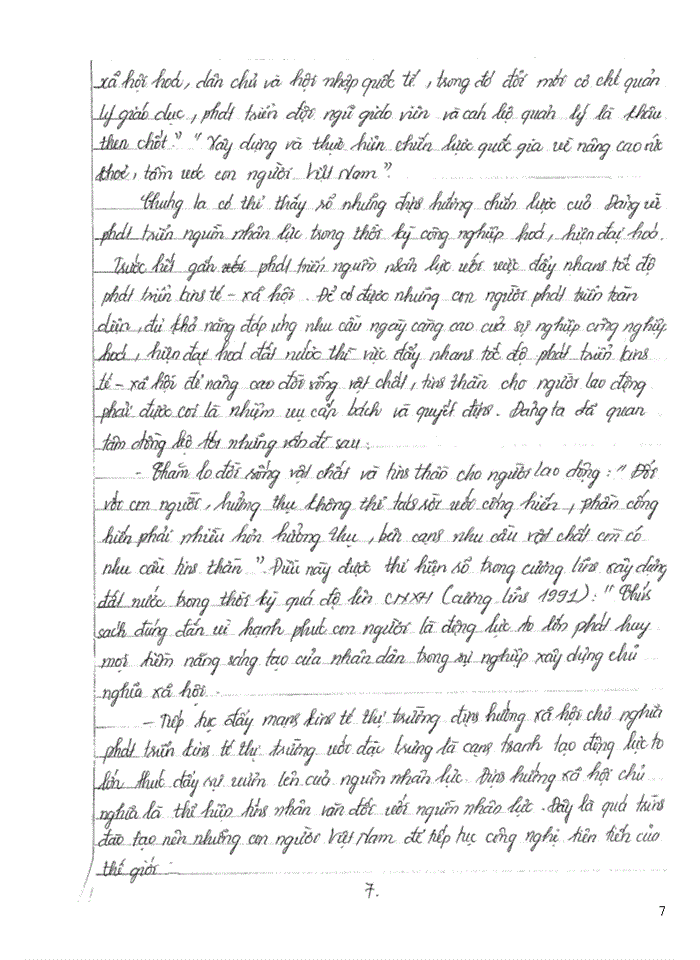 xã hội hoá, dân chủ và hội nhập quốc tế, trong đó đổi mới cơ chế quản
lý giáo dục, phát triển đội ngũ giáo viên và cán bộ quản lý là khâu
then chốt." "Xây dựng và thực hiện chiến lược quốc gia về nâng cao sức
khoẻ, tầm vóc con người Việt Nam".
Chúng ta có thể thấy rõ những định hướng chiến lược của Đảng về
phát triển nguồn nhân lực trong thời kỳ công nghiệp hoá, hiện đại hoá.
Trước hết gắn với phát triển nguồn nhân lực với việc đẩy nhanh tốc độ
phát triển kinh tế - xã hội. Để có được những con người phát triển toàn
diện, đủ khả năng đáp ứng nhu cầu ngày càng cao của sự nghiệp công nghiệp
hoá, hiện đại hoá đất nước thì việc đẩy nhanh tốc độ phát triển kinh
tế - xã hội để nâng cao đời sống vật chất, tinh thần cho người lao động
phải được coi là nhiệm vụ cấp bách và quyết định. Đảng ta đã quan
tâm đồng bộ tới những vấn đề sau:
- Chăm lo đời sống vật chất và tinh thần cho người lao động: "Đối
với con người, hưởng thụ không thể tách rời với cống hiến, phần cống
hiến phải nhiều hơn hưởng thụ, bên cạnh nhu cầu vật chất còn có
nhu cầu tinh thần". Điều này được thể hiện rõ trong cương lĩnh xây dựng
đất nước trong thời kỳ quá độ lên CNXH (cương lĩnh 1991): "Chính
sách đúng đắn vì hạnh phúc con người là động lực to lớn phát huy
mọi tiềm năng sáng tạo của nhân dân trong sự nghiệp xây dựng chủ
nghĩa xã hội.
- Tiếp tục đẩy mạnh kinh tế thị trường định hướng xã hội chủ nghĩa
phát triển kinh tế thị trường với đặc trưng là cạnh tranh tạo động lực to
lớn thúc đẩy sự vươn lên của nguồn nhân lực. Định hướng xã hội chủ
nghĩa là thể hiện tính nhân văn đối với nguồn nhân lực. Đây là quá trình
đào tạo nên những con người Việt Nam để tiếp tục công nghệ tiên tiến của
thế giới.
7.
7